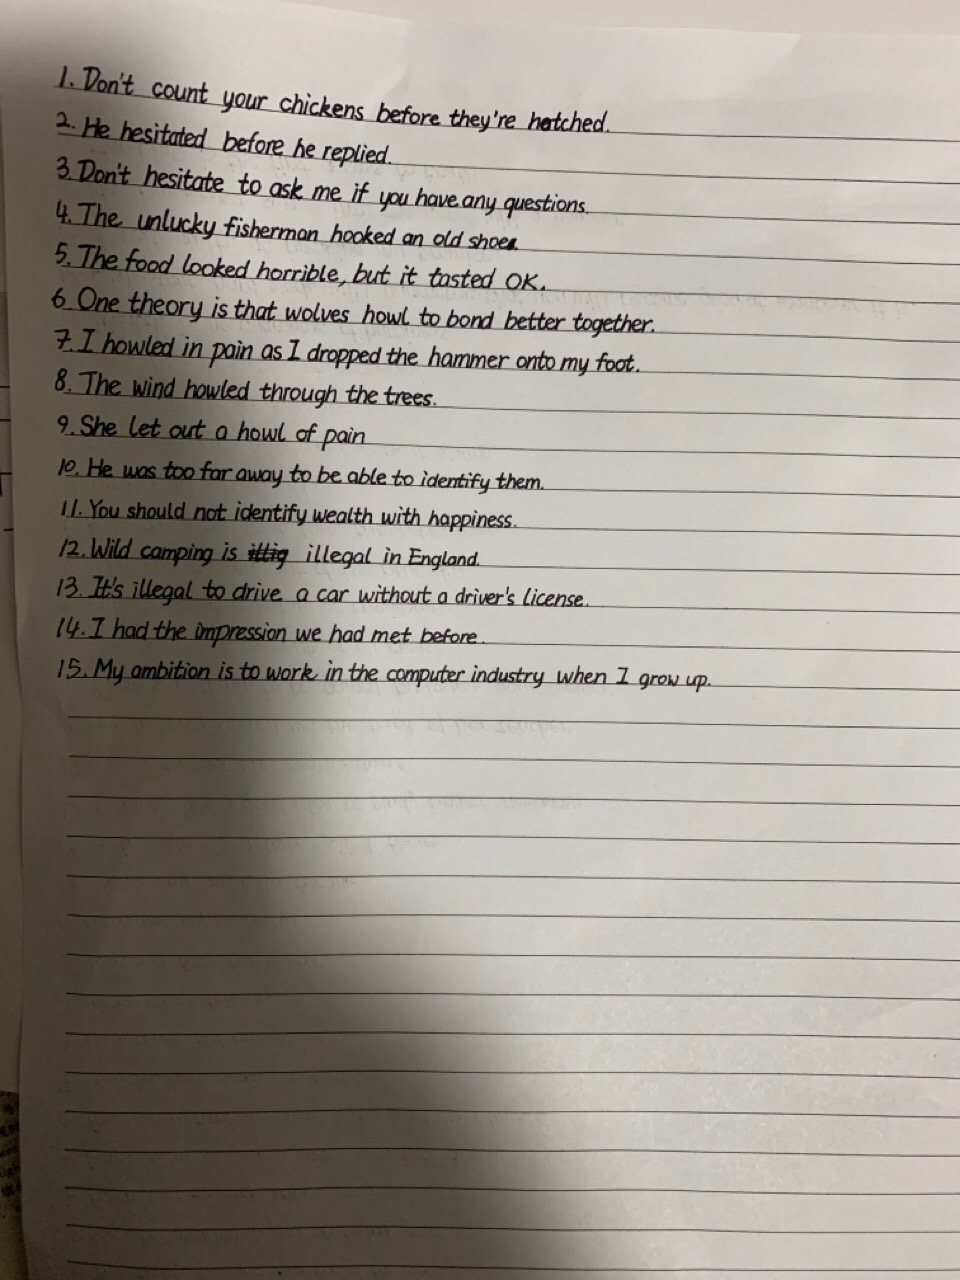 1. Don't count your chickens before they're hatched.
2. He hesitated before he replied.
3. Don't hesitate to ask me if you have any questions.
4. The unlucky fisherman hooked an old shoe.
5. The food looked horrible, but it tasted OK.
6. One theory is that wolves howl to bond better together.
7. I howled in pain as I dropped the hammer onto my foot.
8. The wind howled through the trees.
9. She let out a howl of pain
10. He was too far away to be able to identify them.
11. You should not identify wealth with happiness.
12. Wild camping is illegal in England.
13. It's illegal to drive a car without a driver's license.
14. I had the impression we had met before.
15. My ambition is to work in the computer industry when I grow up.